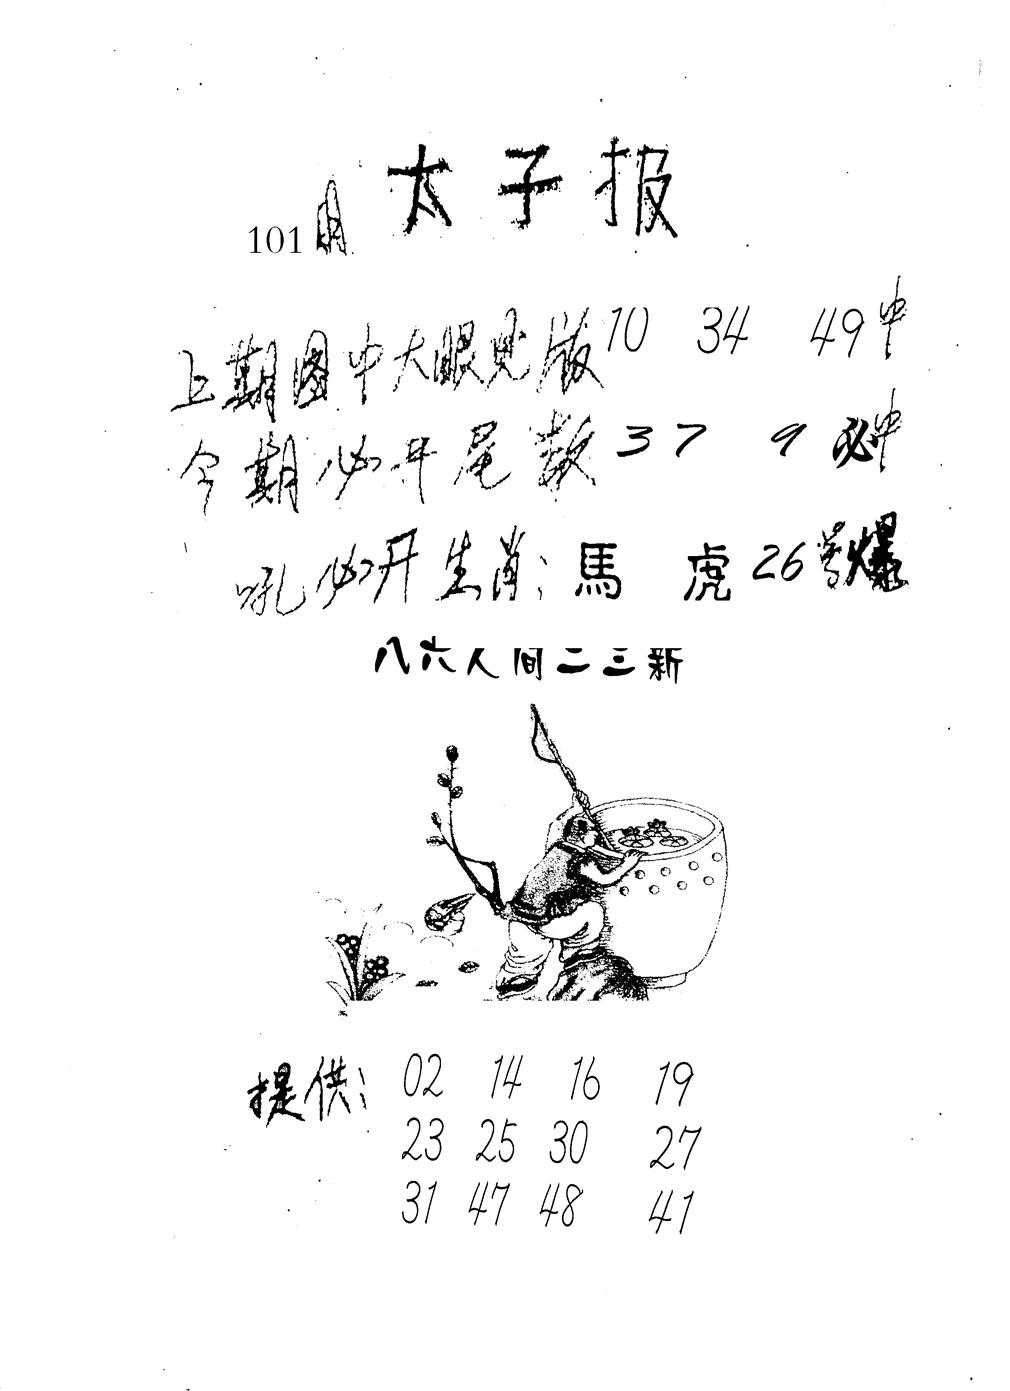 太子报
101期
上期图中大眼见版10 34 49中
今期必开尾数37 9必中
吼必开生肖:馬 虎26号爆
八六人间二三新
提供: 02 14 16 19
23 25 30 27
31 47 48 41